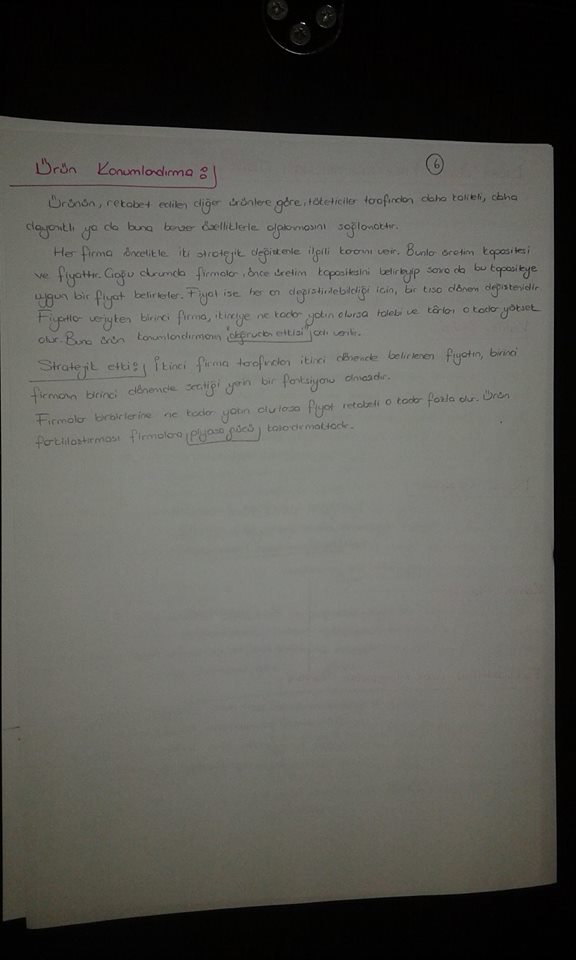 6
Ürün Konumlandırma:
Ürünün, rekabet edilen diğer ürünlere göre, tüketiciler tarafından daha kaliteli, daha
dayanıklı ya da buna benzer özelliklerle algılanmasını sağlamaktır.
Her firma öncelikle iki stratejik değişkenle ilgili kararını verir. Bunlar üretim kapasitesi
ve fiyattır. Çoğu durumda firmalar, önce üretim kapasitesini belirleyip sonra da bu kapasiteye
uygun bir fiyat belirlerler. Fiyat ise her an değiştirilebildiği için, bir kısa dönem değişkenidir.
Fiyatlar veriyken birinci firma, ikinciye ne kadar yakın olursa talebi ve kârları o kadar yüksek
olur. Buna ürün konumlandırmanın "doğrudan etkisi" adı verilir.
Stratejik etki: İkinci firma tarafından ikinci dönemde belirlenen fiyatın, birinci
firmanın birinci dönemde seçtiği yerin bir fonksiyonu olmasıdır.
Firmalar birbirlerine ne kadar yakın olurlarsa fiyat rekabeti o kadar fazla olur. Ürün
farklılaştırması firmalara piyasa gücü kazandırmaktadır.